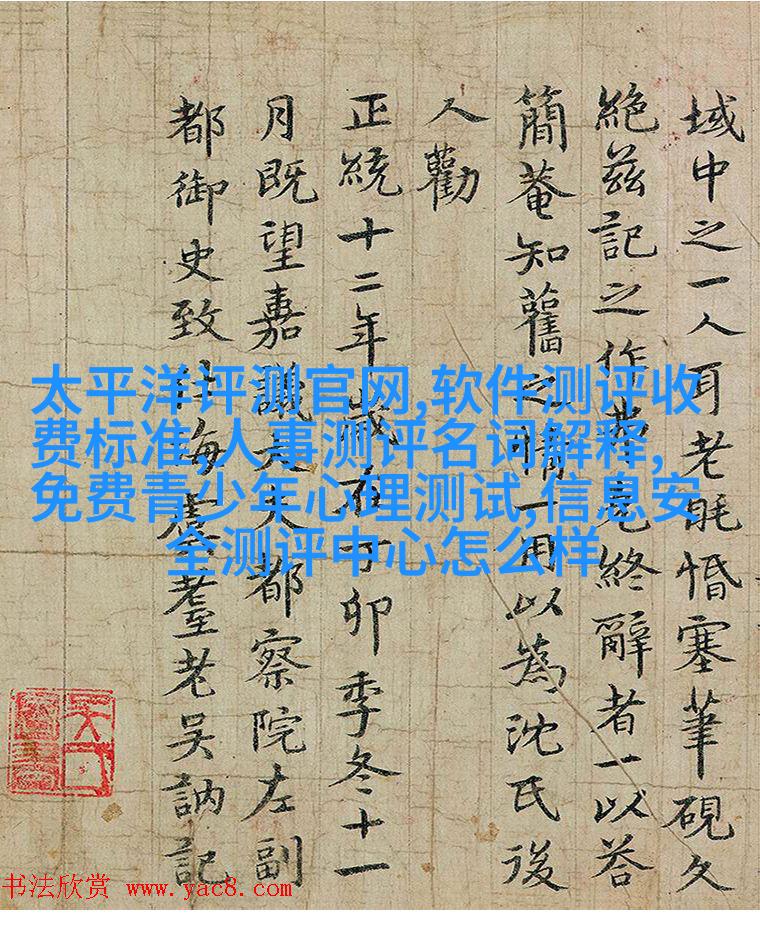 域中之一人耳老眊惛塞筆硯久
絕茲記之作
終辭者一以荅
簡菴知舊之情一用以為沈氏後
人勸
正統十二年歲在丁卯季冬十一
月既望嘉議大夫都察院左副
都御史致仕海虞耋老吳訥記
太平洋评测官网,软件测评收
费标准,人事测评名词解释,
免费青少年心理测试,信息安
全测评中心怎么样
书法欣赏 www.yac8.com